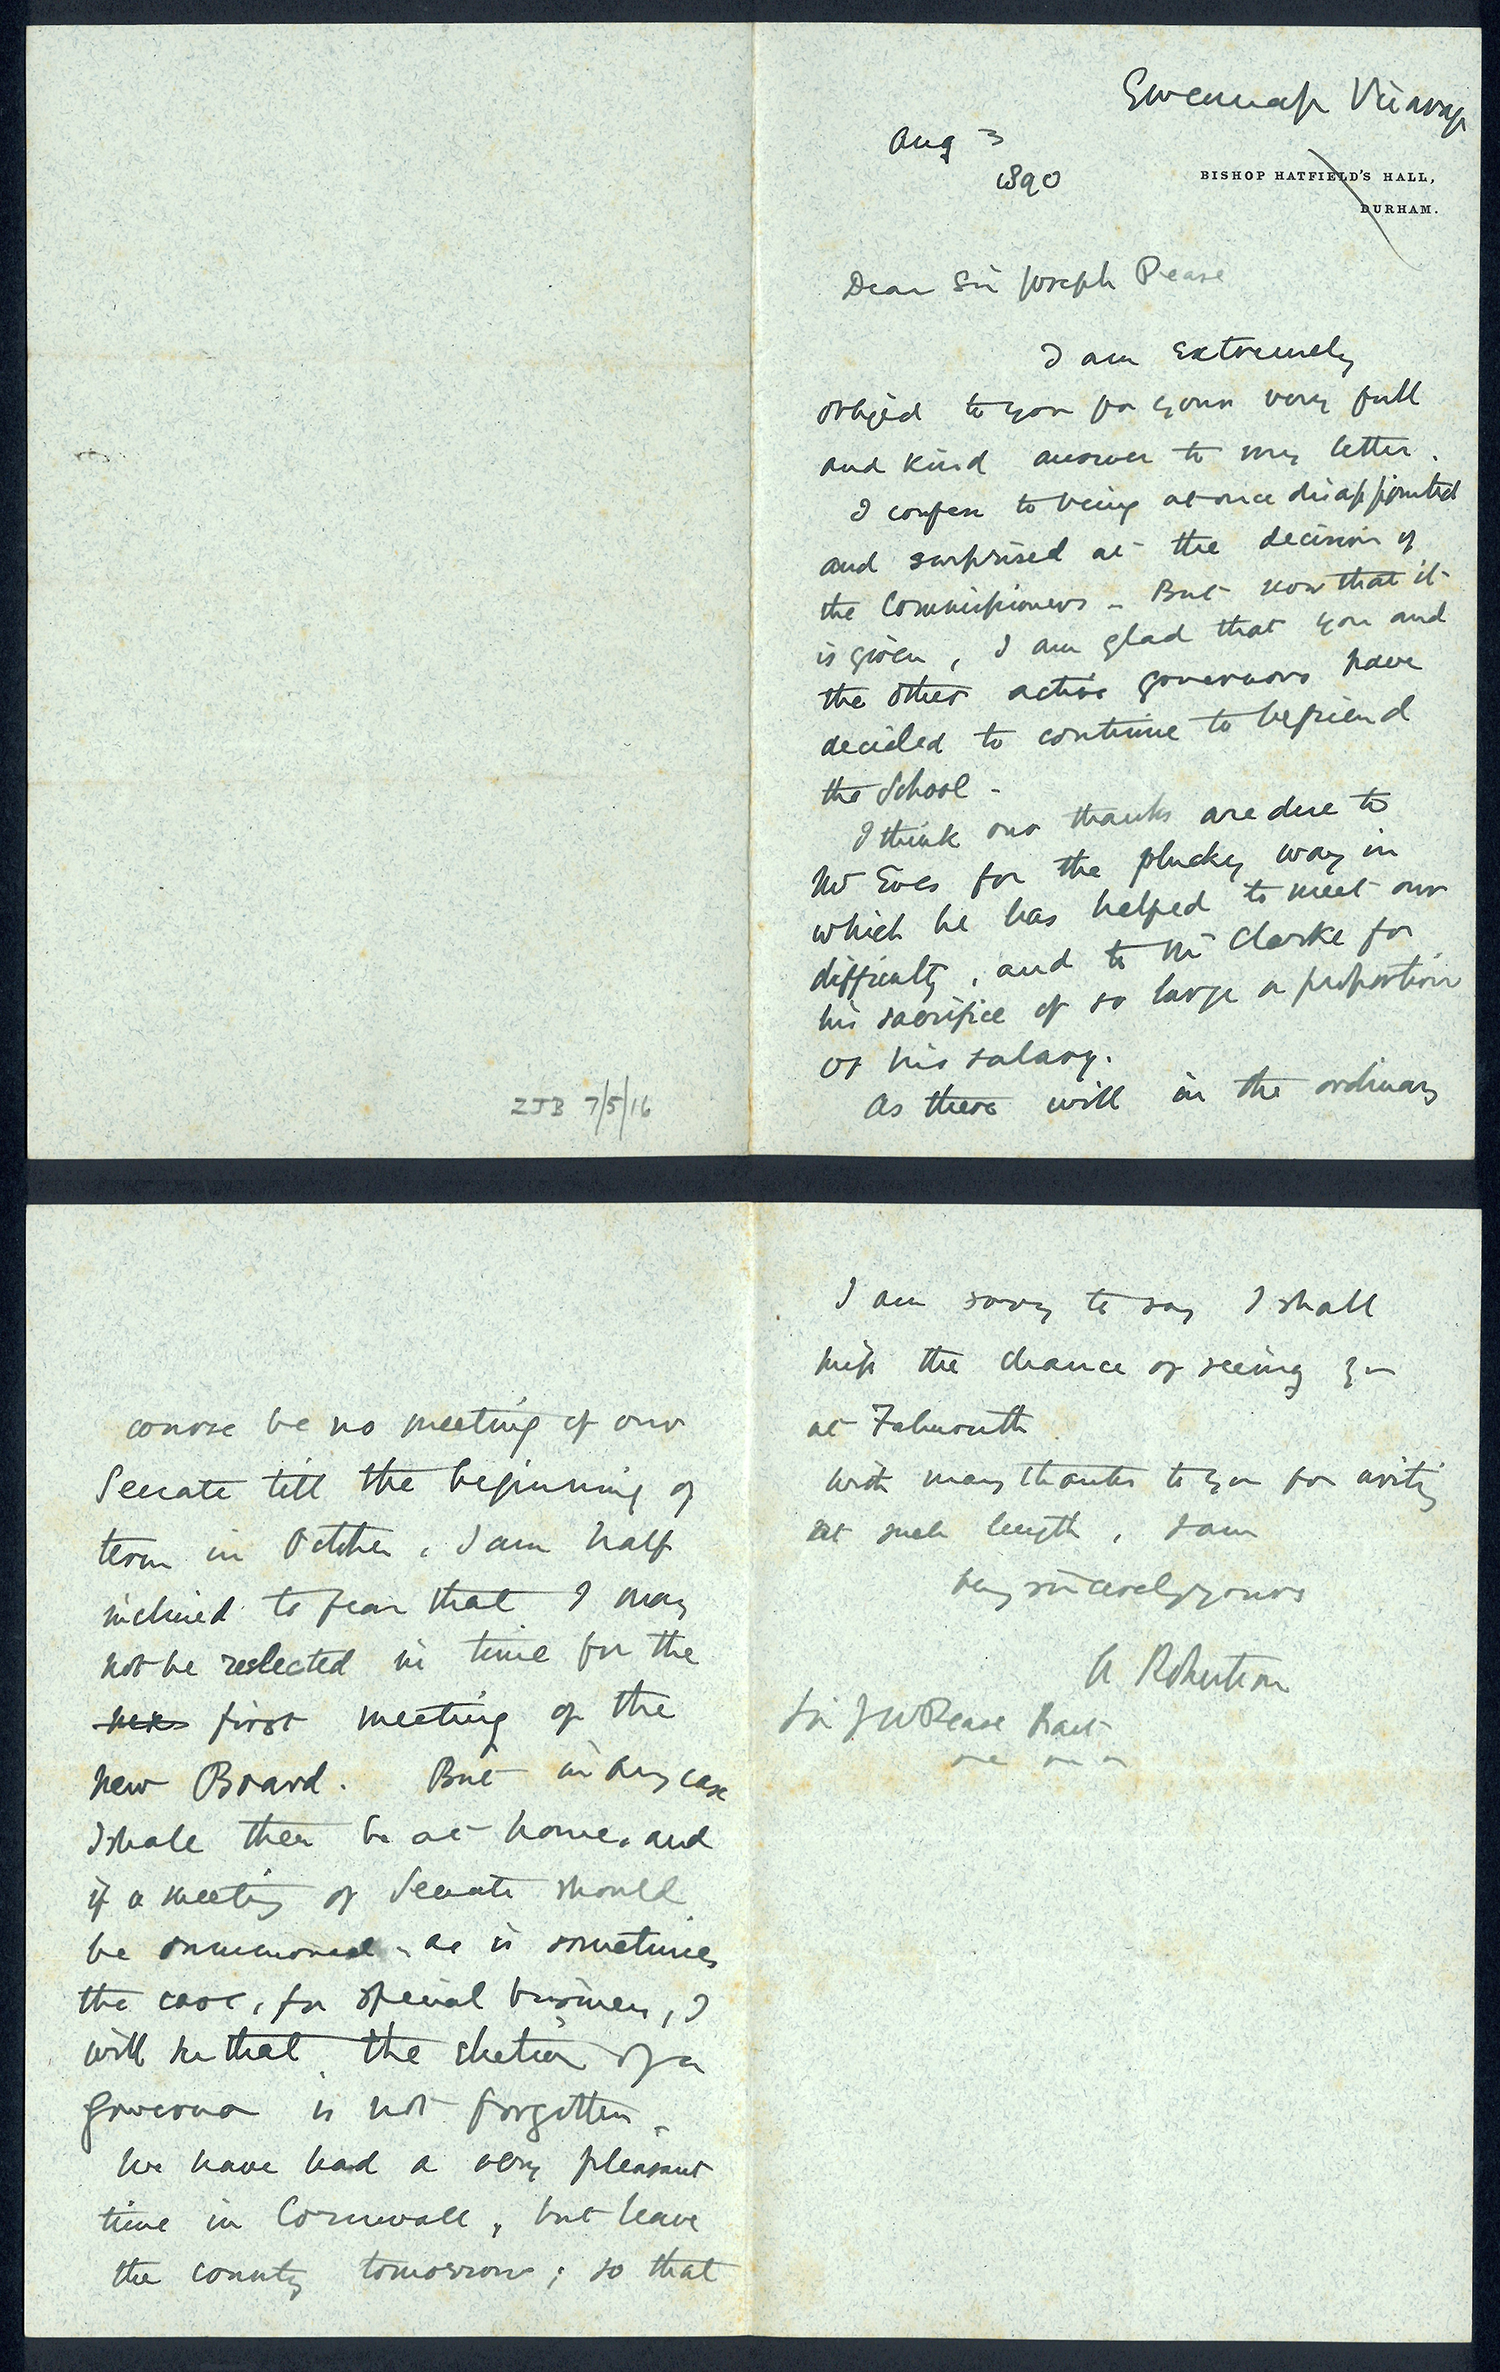 Gwennap Vicarage
Aug 3
1890
BISHOP HATFIELD'S HALL,
DURHAM.
Dear Sir Joseph Pease
I am extremely
obliged to you for your very full
and kind answer to my letter.
I confess to being at once disappointed
and surprised at the decision of
the Commissioners - But now that it
is given, I am glad that you and
the other active governors have
decided to continue to befriend
the School -
I think our thanks are due to
Mr Eves for the plucky way in
which he has helped to meet our
difficulty, and to Mr Clarke for
his sacrifice of so large a proportion
of his salary.
As there will in the ordinary
ZJB 7/5/16
course be no meeting of our
Senate till the beginning of
term in October, I am half
inclined to fear that I may
not be reelected in time for the
first meeting of the
new Board. But in any case
I shall then be at home, and
if a meeting of Senate should
be summoned, as is sometimes
the case, for special business, I
will see that the election of a
governor is not forgotten -
We have had a very pleasant
time in Cornwall, but leave
the county tomorrow; so that
I am sorry to say I shall
miss the chance of seeing you
at Falmouth
With many thanks to you for writing
at such length, I am
very sincerely yours
A Robertson
Sir J W Pease Bart